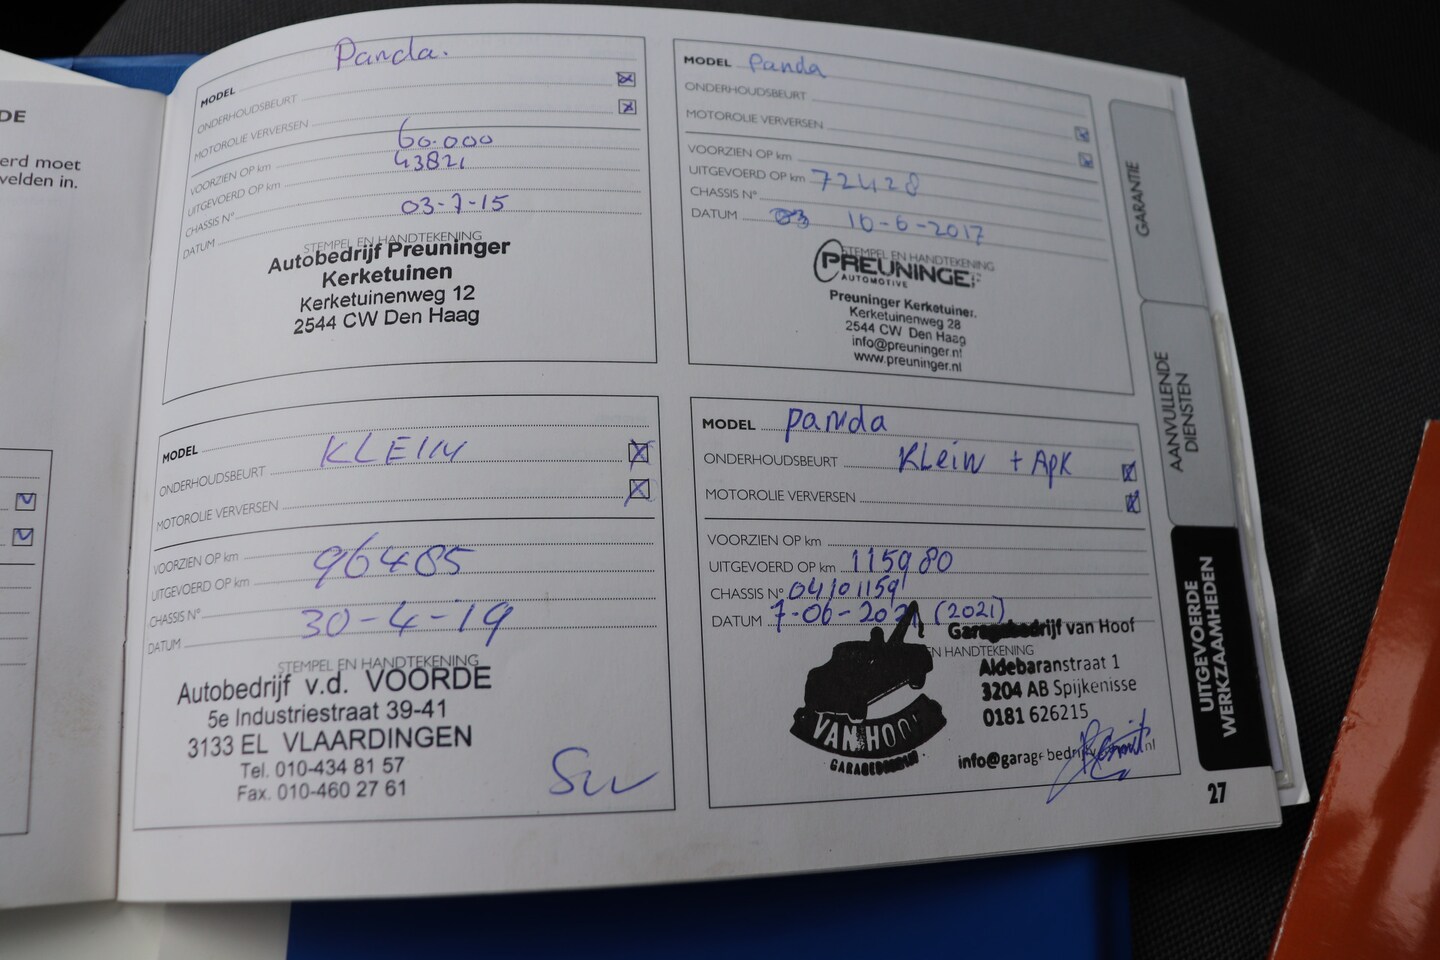 DE
erd moet
velden in.
MODEL Panda.
ONDERHOUDSBEURT
MOTOROLIE VERVERSEN
VOORZIEN OP km 60.000
UITGEVOERD OP km 43821
CHASSIS N°
DATUM 03-7-15
STEMPEL EN HANDTEKENING
Autobedrijf Preuninger
Kerketuinen
Kerketuinenweg 12
2544 CW Den Haag
MODEL Panda
ONDERHOUDSBEURT
MOTOROLIE VERVERSEN
VOORZIEN OP km
UITGEVOERD OP km 72428
CHASSIS N°
DATUM 03 10-6-2017
STEMPEL EN HANDTEKENING
PREUNINGER
AUTOMOTIVE
Preuninger Kerketuinen
Kerketuinenweg 28
2544 CW Den Haag
info@preuninger.nl
www.preuninger.nl
MODEL
ONDERHOUDSBEURT KLEIN
MOTOROLIE VERVERSEN
VOORZIEN OP km
UITGEVOERD OP km 96485
CHASSIS N°
DATUM 30-4-19
STEMPEL EN HANDTEKENING
Autobedrijf v.d. VOORDE
5e Industriestraat 39-41
3133 EL VLAARDINGEN
Tel. 010-434 81 57
Fax. 010-460 27 61
MODEL panda
ONDERHOUDSBEURT KLein + APK
MOTOROLIE VERVERSEN
VOORZIEN OP km
UITGEVOERD OP km 115980
CHASSIS N° 04101159
DATUM 7-06-2021 (2021)
EN HANDTEKENING
Garagebedrijf van Hoof
Aldebaranstraat 1
3204 AB Spijkenisse
0181 626215
VAN HOOF
GARAGEBEDRIJF
GARANTIE
AANVULLENDE
DIENSTEN
UITGEVOERDE
WERKZAAMHEDEN
27